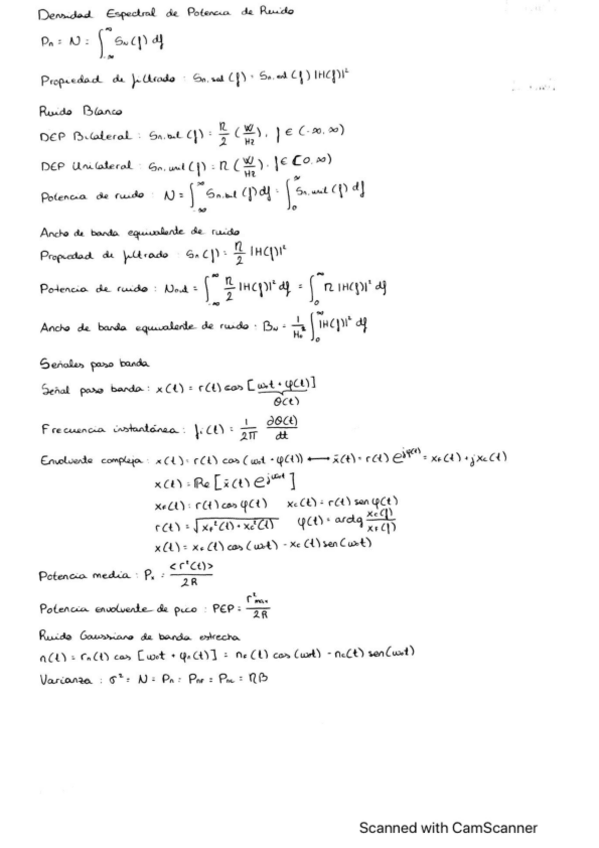 Densidad Espectral de Potencia de Ruido
Pn = N = ∫_{-∞}^{∞} Sn(f) df
Propiedad de filtrado : Sn,sal (f) = Sn,ent (f) |H(f)|²
Ruido Blanco
DEP Bilateral : Sn,bil (f) = η/2 (W/Hz), f ∈ (-∞, ∞)
DEP Unilateral : Sn,unil (f) = η (W/Hz), f ∈ [0, ∞)
Potencia de ruido : N = ∫_{-∞}^{∞} Sn,bil (f) df = ∫_{0}^{∞} Sn,unil (f) df
Ancho de banda equivalente de ruido
Propiedad de filtrado : Sn (f) = η/2 |H(f)|²
Potencia de ruido : Nout = ∫_{-∞}^{∞} η/2 |H(f)|² df = ∫_{0}^{∞} η |H(f)|² df
Ancho de banda equivalente de ruido : BN = 1/Ho² ∫_{0}^{∞} |H(f)|² df
Señales paso banda
Señal paso banda : x(t) = r(t) cos [ωot + φ(t)]
θ(t)
Frecuencia instantánea : fi(t) = 1/2π ∂θ(t)/dt
Envolvente compleja : x(t) = r(t) cos (ωot + φ(t)) ⟷ x̃(t) = r(t) e^{jφ(t)} = xF(t) + jxC(t)
x(t) = Re [x̃(t) e^{jωot}]
xF(t) = r(t) cos φ(t) xC(t) = r(t) sen φ(t)
r(t) = √(xF²(t) + xC²(t)) φ(t) = arctg xC(f)/xF(f)
x(t) = xF(t) cos (ωot) - xC(t) sen(ωot)
Potencia media : Px = <r²(t)>/2R
Potencia envolvente de pico : PEP = r²max/2R
Ruido Gaussiano de banda estrecha
n(t) = rn(t) cos [ωot + φn(t)] = nF(t) cos (ωot) - nC(t) sen(ωot)
Varianza : σ² = N = Pn = PnF = PnC = ηB
Scanned with CamScanner